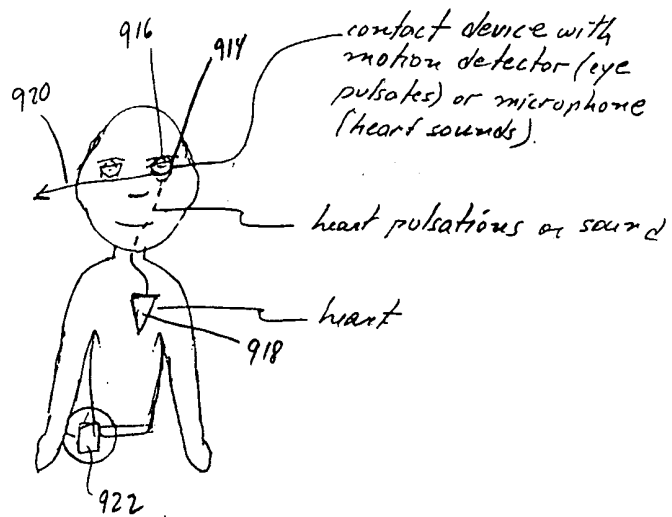 916
914
920
contact device with
motion detector (eye
pulsates) or microphone
(heart sounds).
heart pulsations or sound
heart
918
922